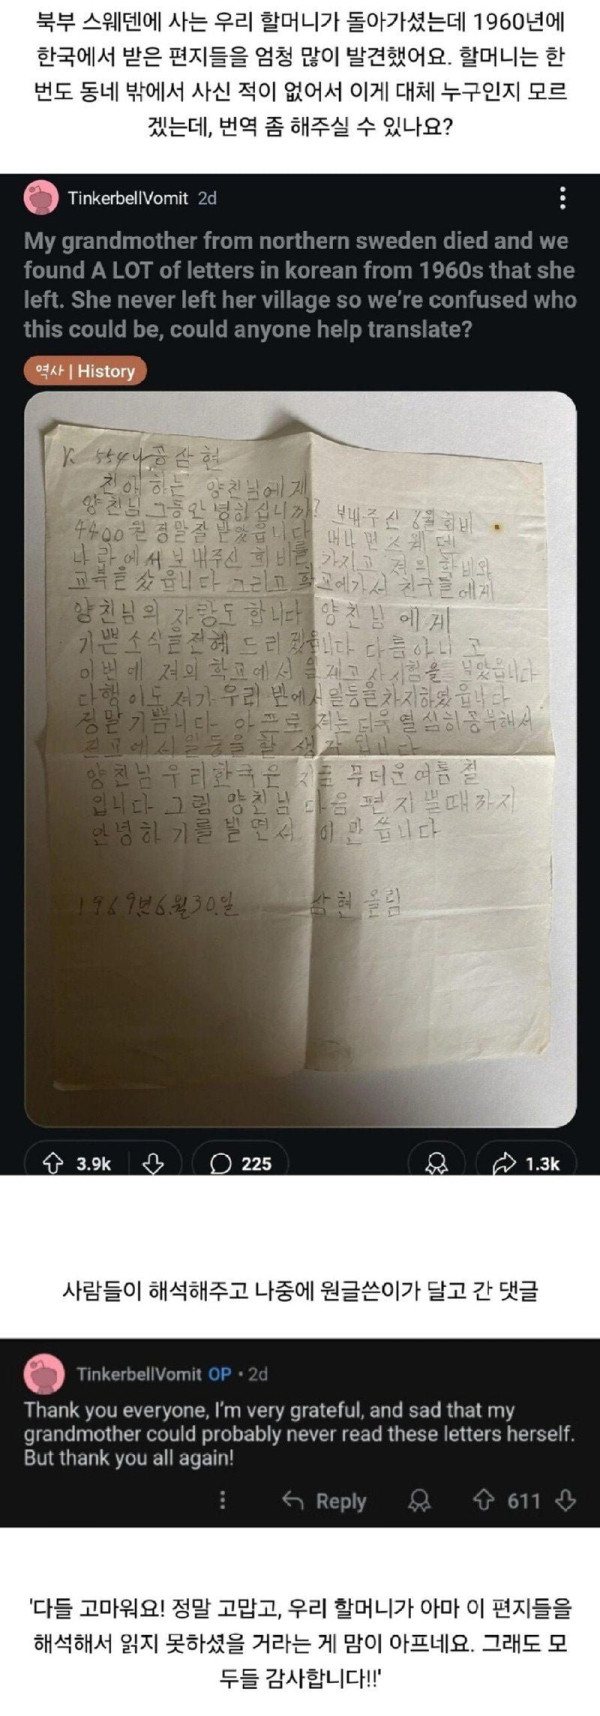 북부 스웨덴에 사는 우리 할머니가 돌아가셨는데 1960년에
한국에서 받은 편지들을 엄청 많이 발견했어요. 할머니는 한
번도 동네 밖에서 사신 적이 없어서 이게 대체 누구인지 모르
겠는데, 번역 좀 해주실 수 있나요?
TinkerbellVomit 2d
My grandmother from northern sweden died and we
found A LOT of letters in korean from 1960s that she
left. She never left her village so we're confused who
this could be, could anyone help translate?
역사 | History
K 5544 공삼현
친아하는 양친님에게
양친님 그동안 녕하십니까? 보내주신 6월 회비
4400원 정말잘 받았읍니다 머나먼 스웨덴
나라에서 보내주신 회비를 가지고 저의 학비와
교복을 샀읍니다 그리고 학교에가서 친구들에게
양친님의 자랑도 합니다 양친님에게
기쁜 소식을전해 드리겠읍니다 다름아니고
이번에 저의 학교에서 일제고사시험을
다행이도 저가 우리 반에서일등을차지하였읍니다
정말 기쁩니다 아프로 저는 더욱 열심히공부해서
전교에서일등을할 생각입니다
양친님 우리한국은 지금 무더운여름철
입니다 그럼 양친님 다음 편지쓸때까지
안녕하기를빌면서 이만씁니다
1969년6월30일 삼현 올림
3.9k 225 1.3k
사람들이 해석해주고 나중에 원글쓴이가 달고 간 댓글
TinkerbellVomit OP • 2d
Thank you everyone, I'm very grateful, and sad that my
grandmother could probably never read these letters herself.
But thank you all again!
Reply 611
'다들 고마워요! 정말 고맙고, 우리 할머니가 아마 이 편지들을
해석해서 읽지 못하셨을 거라는 게 맘이 아프네요. 그래도 모
두들 감사합니다!!'